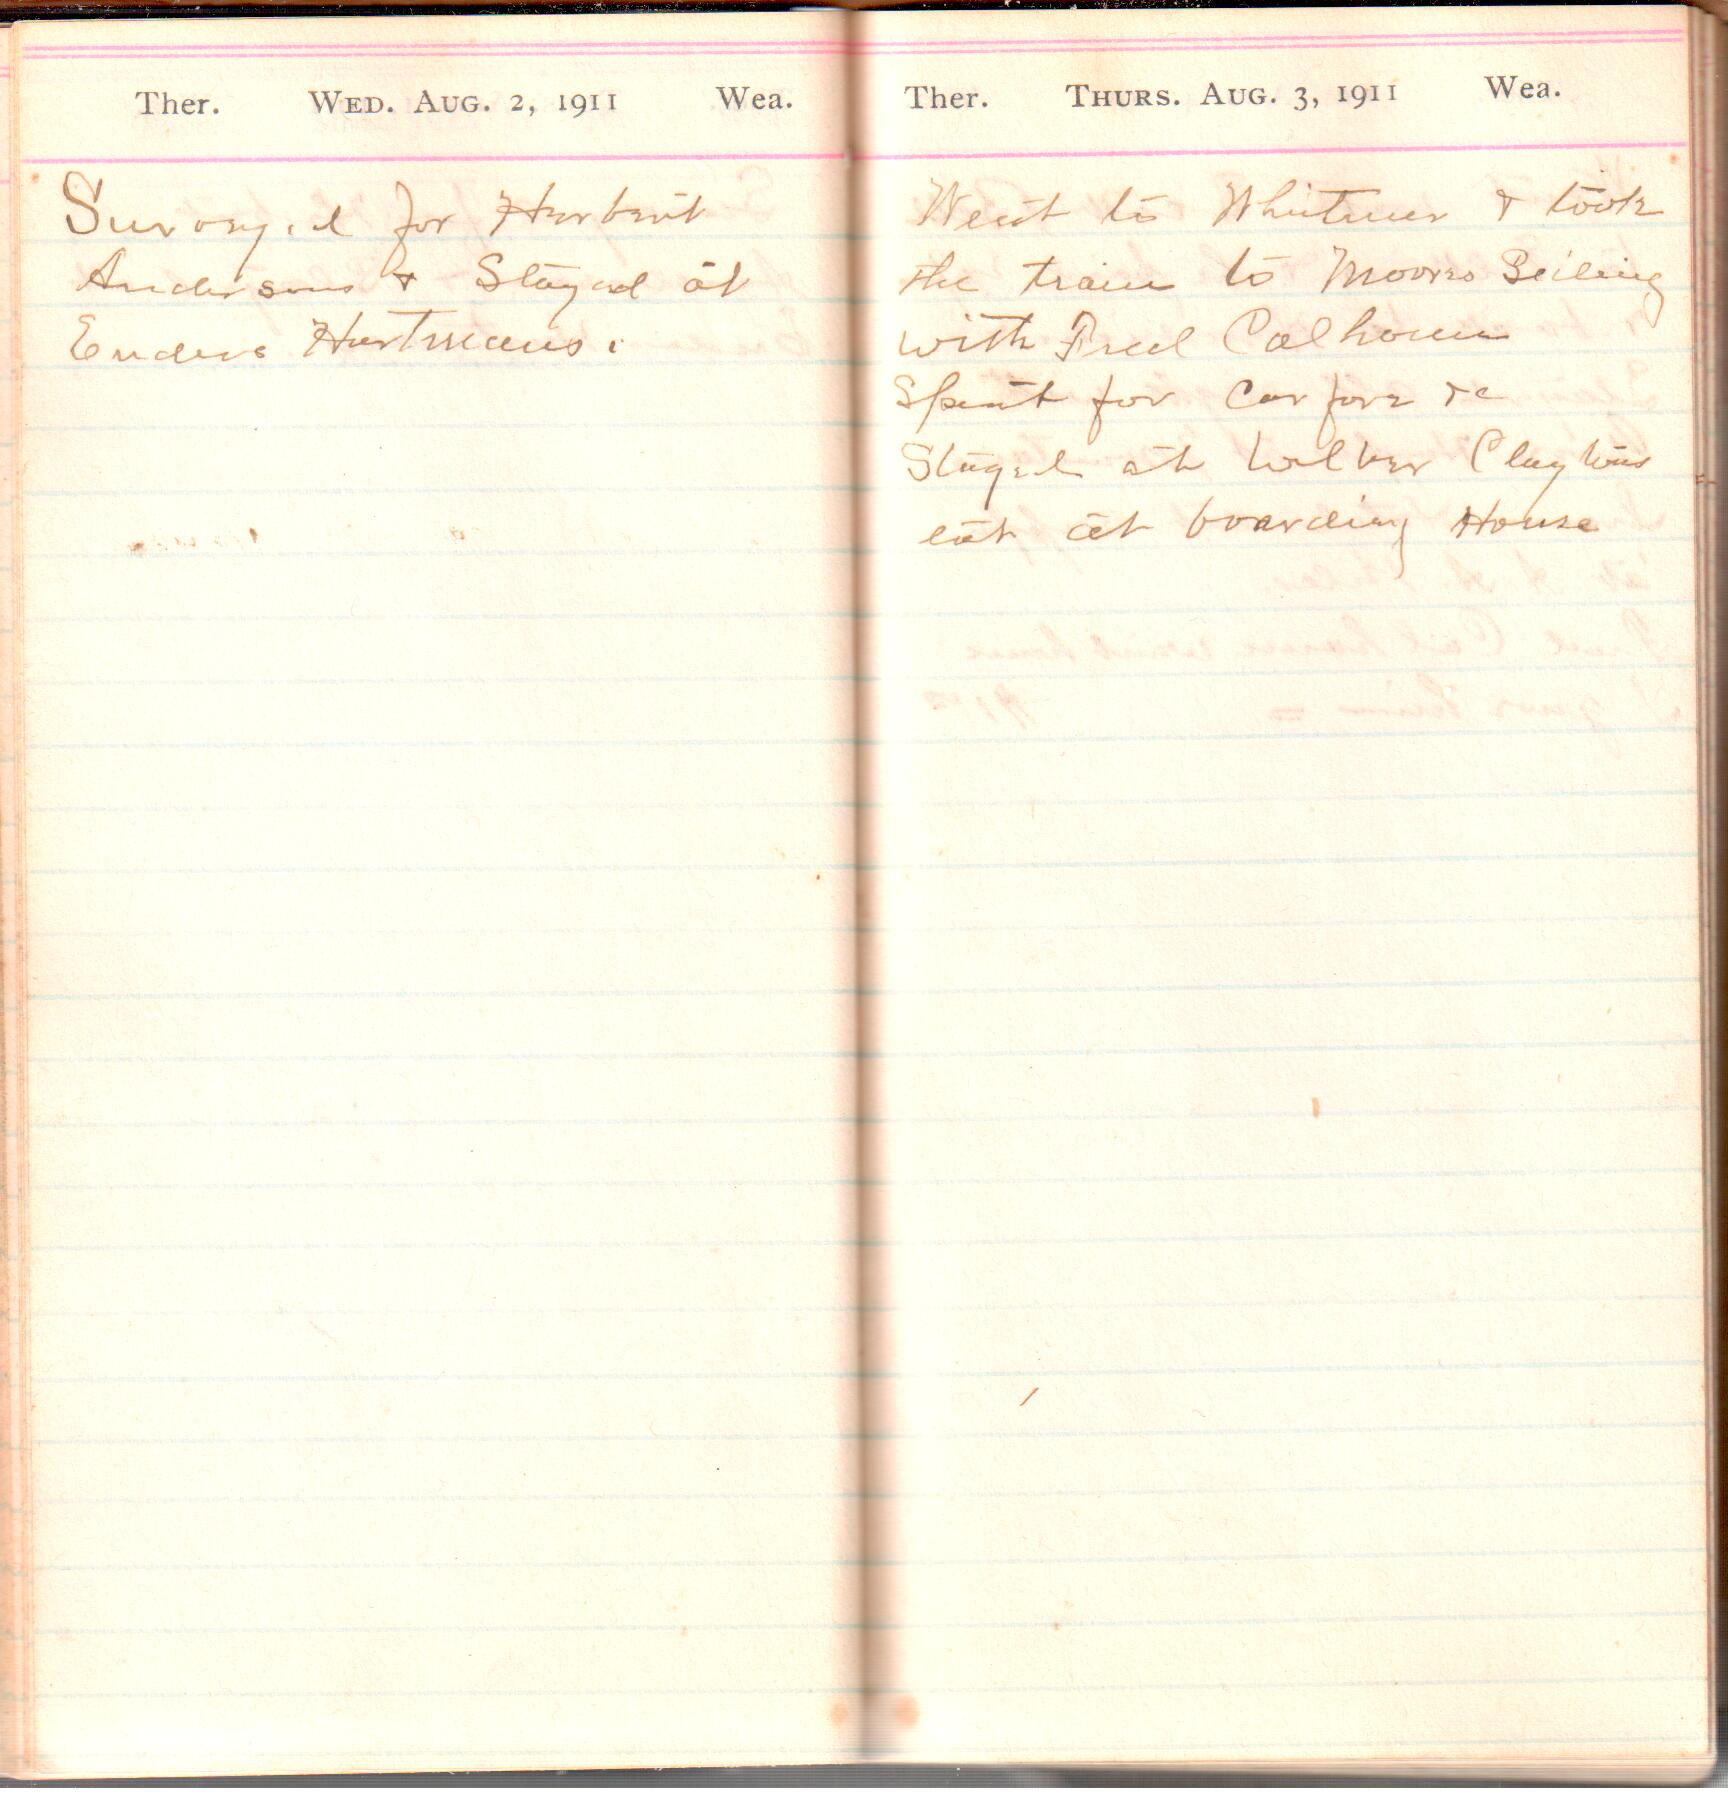 Ther. WED. AUG. 2, 1911 Wea.
Surveyed for Herbert
Andersons & Stayed at
Enders Hartmans.
Ther. THURS. AUG. 3, 1911 Wea.
Went to Whitmer & took
the train to Moores Seileing
with Fred Calhoun
Spent for Car fore &c
Stayed at Wilber Claytons
eat at boarding House